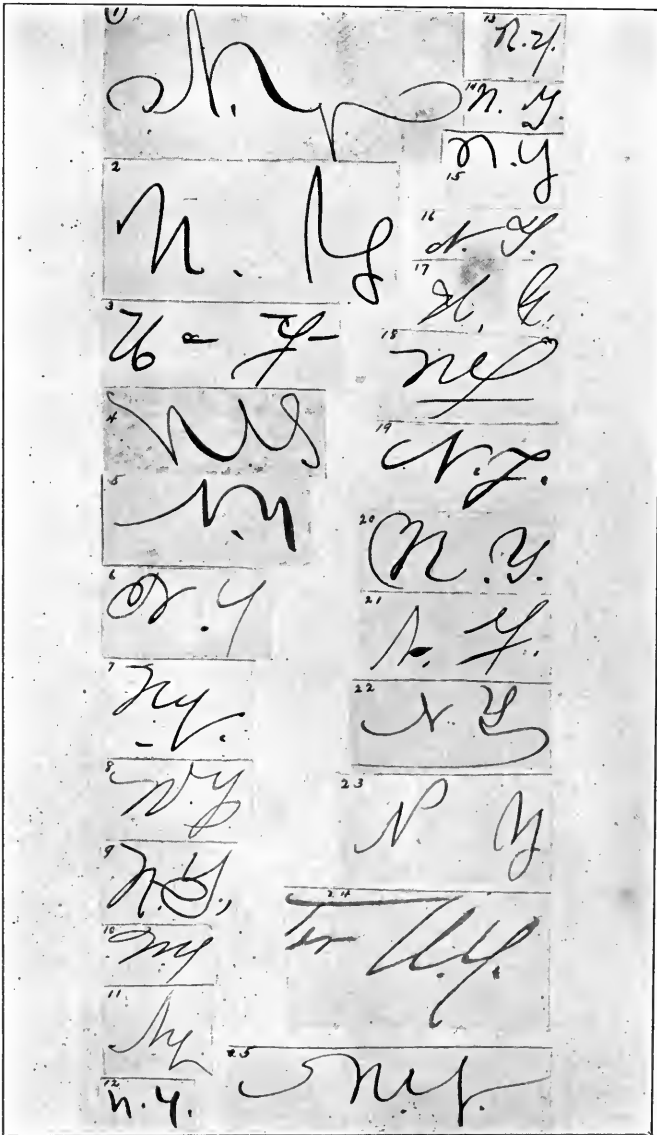 1
N. Y
2
N. Y
3
N - Y -
4
NY
5
N.Y
6
N.Y
7
N.Y.
8
N.Y
9
N.Y.,
10
N.Y
11
N.Y
12
N.Y.
13
N.Y.
14
N. Y.
15
N.Y
16
N. Y.
17
N. Y.
18
NY
19
N.Y.
20
N.Y.
21
N. Y.
22
N. Y
23
N. Y
24
N.Y.
25
N.Y.